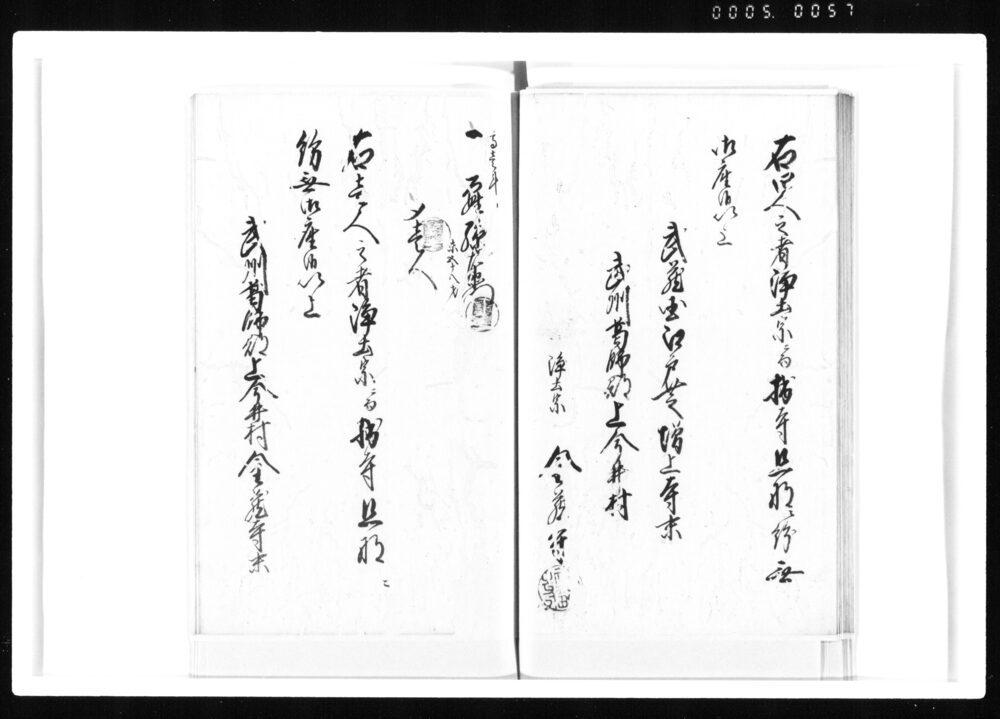 0005.0057
右四人之者浄土宗ニ而拙寺旦那ニ紛無
御座候以上
武蔵国江戸芝増上寺末
武州葛飾郡上今井村
浄土宗
金蔵寺
一
未五十八才
〆壱人
右壱人之者浄土宗ニ而拙寺旦那ニ
紛無御座候以上
武州葛飾郡上今井村金蔵寺末